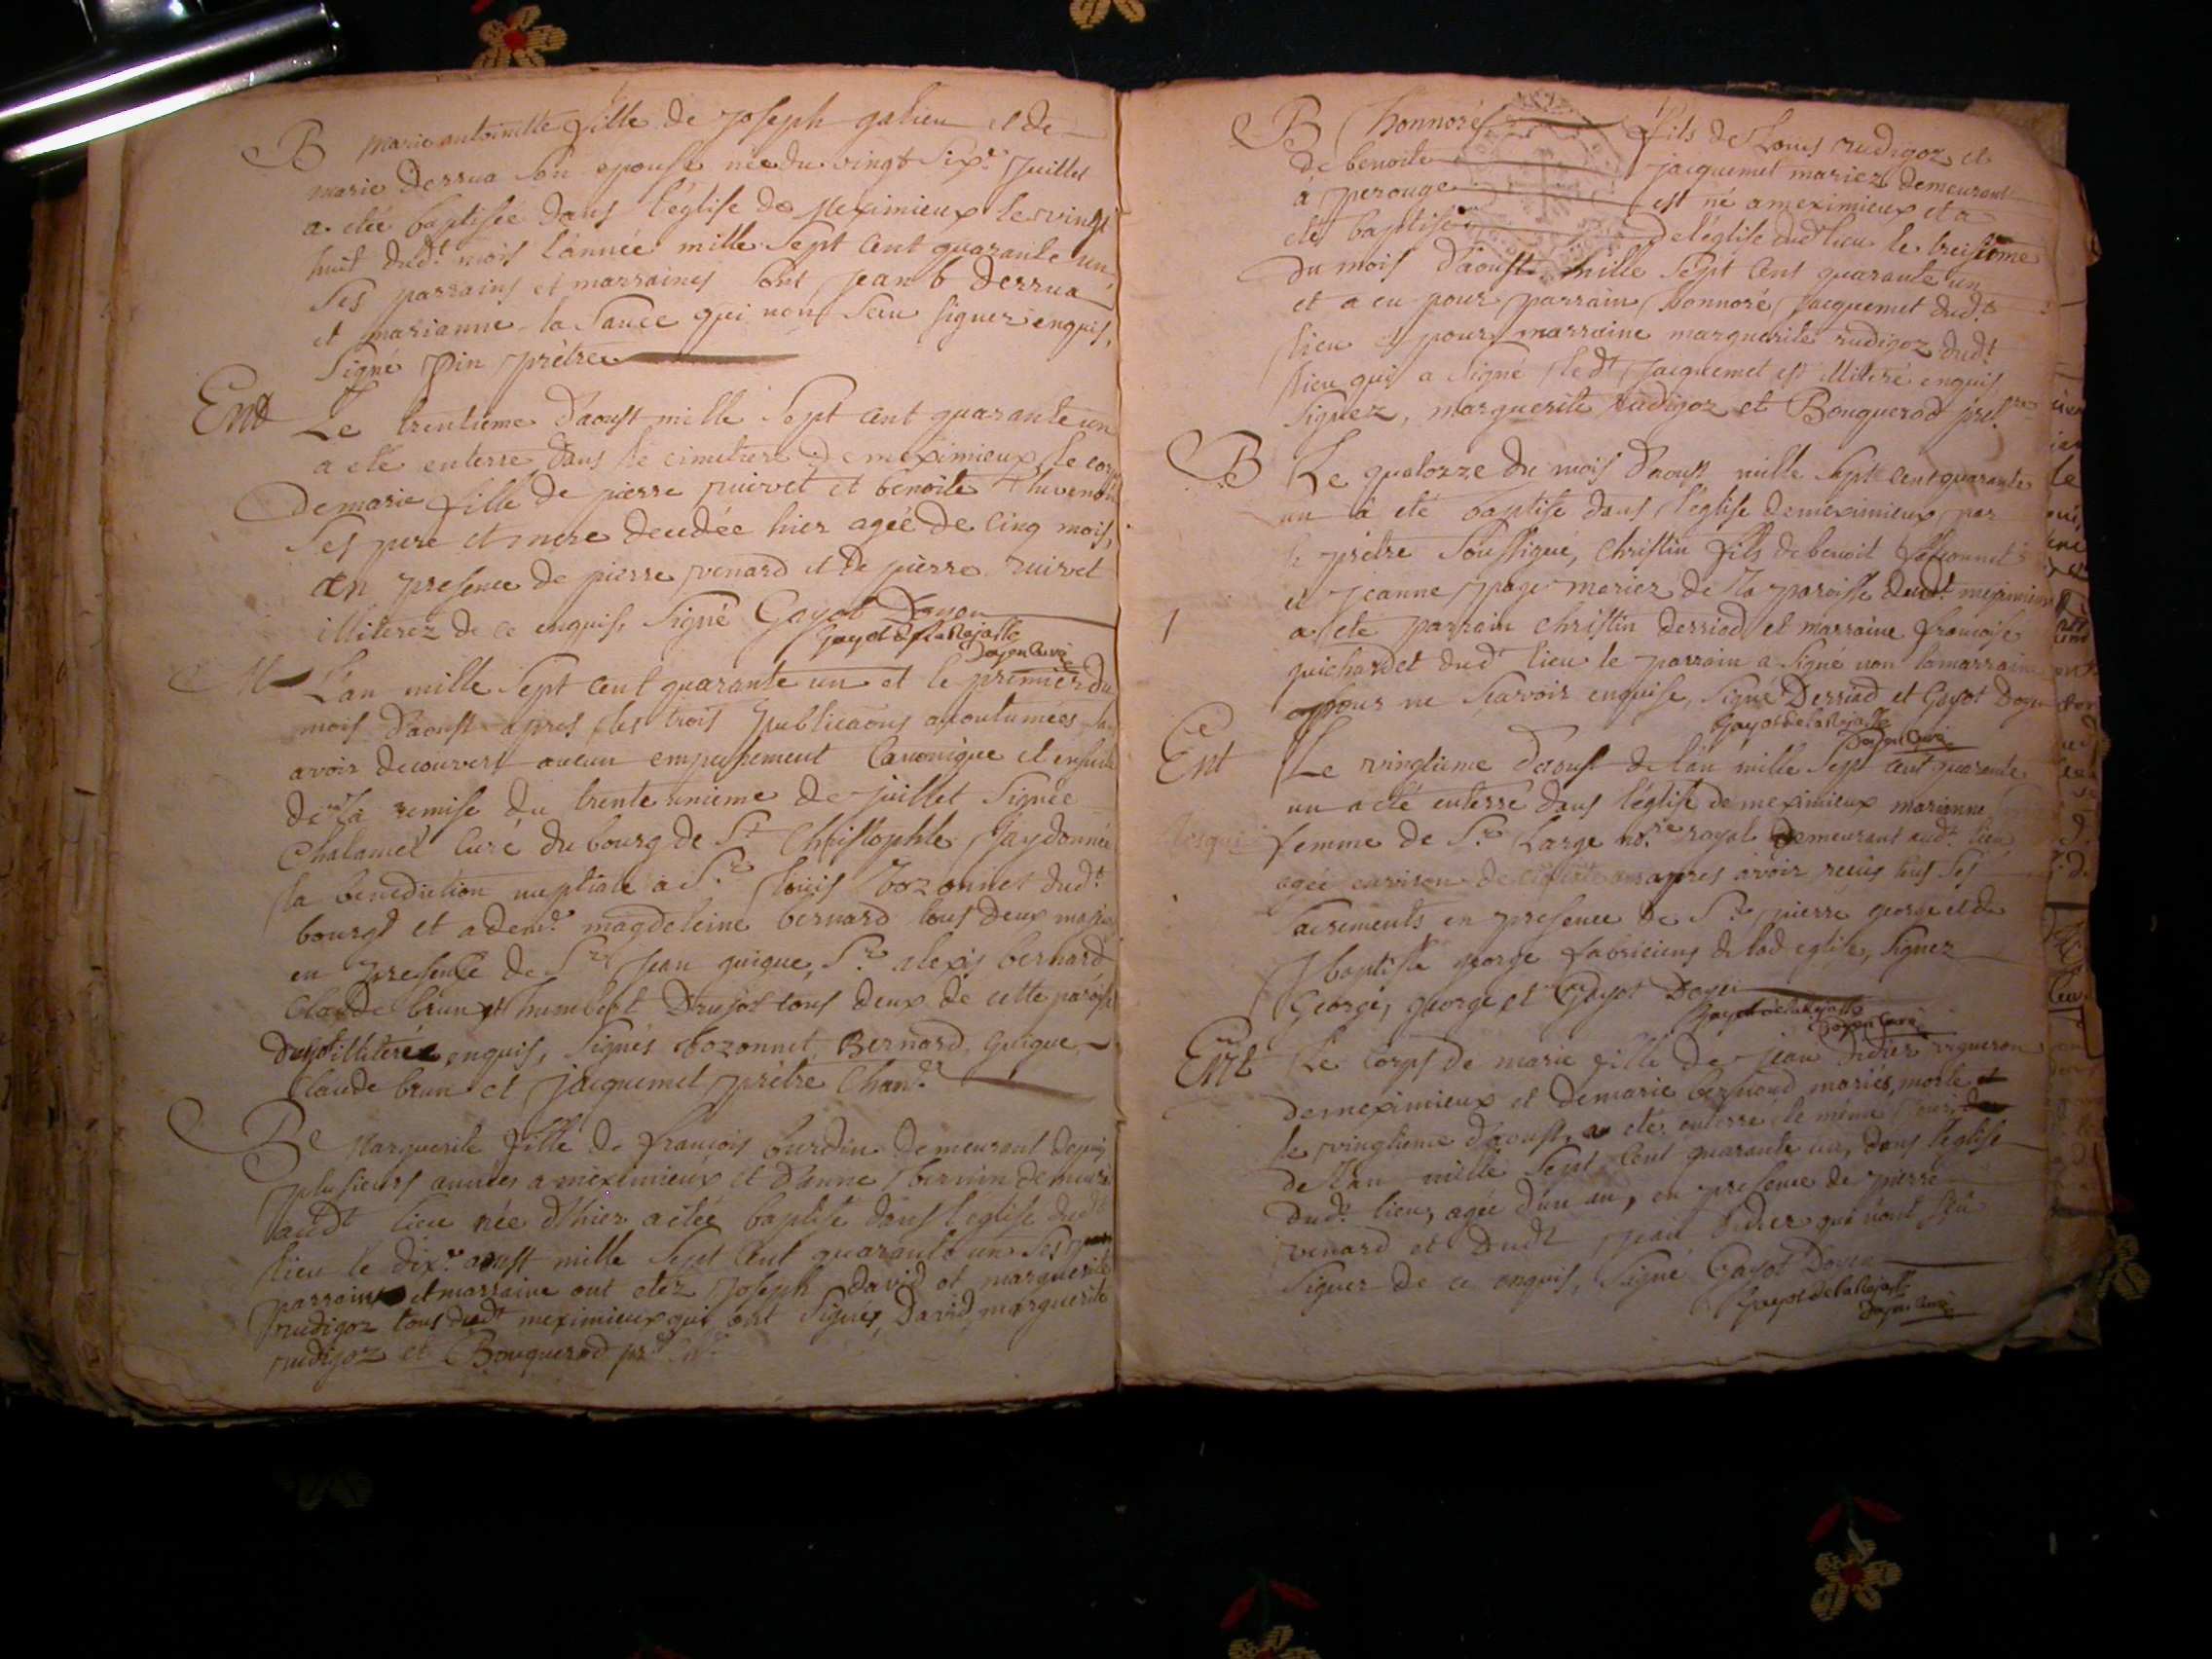 B Marie antoinette fille de joseph galien et de
marie Derrua son epouse née du vingt six.e juillet
a eté baptisée dans l'église de Meximieux le vingt
huit dud.t mois l'année mille sept cent quarante un,
ses parrains et marraines sont jean b Derrua
et marianne la Sauce qui nont sceu signer enquis,
Signé Pin prêtre
Ent Le trentieme d'aoust mille sept cent quarante un
a eté enterré dans le cimetiere de meximieux le corps
de marie fille de pierre ruivet et benoite thevenon
ses pere et mere decedée hier agée de cinq mois,
en presence de pierre venard et de pierre ruivet
illiterez de ce enquis, Signé Gayot Doyen
Gayot de la Rajasse
Doyen Curé
M L'an mille sept cent quarante un et le premier du
mois d'aoust apres les trois publicaons acoutumées sans
avoir decouvert aucun empechement Canonique et ensuite
de la remise du trente unieme de juillet Signée
Chalamel Curé du bourg de S.t Christophle J'ay donné
la benediction nuptiale a S.r Louis bozonnet dud.t
bourgt et a dem.e magdeleine bernard tous deux majeurs
en presence de S.r jean guigue, S.r alexis bernard
Claude brun et humbert Drujot tous deux de cette paroisse
Drujot illiteré enquis, Signés bozonnet Bernard guigue
Claude brun et jacquemet prêtre Chan.e
B Marguerite fille de francois burdin demeurant depuis
plusieurs années a meximieux et d'anne bernin
aud.t lieu née d'hier a etée baptisé dans l'église dud.t
lieu le dix.e aoust mille sept cent quarante un ses
parrain et marraine ont etez joseph david et marguerite
rudigoz tous dud.t meximieux qui ont Signés, David, marguerite
rudigoz et Bouquerod
B honnoré fils de Louis rudigoz et
de benoite jacquemet mariez demeurant
à perouge est né a meximieux et a
eté baptisé de l'église dud.t lieu le treisieme
du mois d'aoust mille sept cent quarante un
et a eu pour parrain honnoré jacquemet dud.t
lieu et pour marraine marguerite rudigoz dud.t
lieu qui a signé led.t jacquemet est illiteré enquis
Signez, marguerite rudigoz et Bouquerod
B Le quatorze du mois d'aoust mille sept cent quarante
un a eté baptisé dans l'église de meximieux par
le prêtre soussigné, christin fils de benoit
et jeanne page mariez de la paroisse dud.t meximieux
a eté parrain christin derriod et marraine francoise
guichardet dud.t lieu le parrain a signé non la marraine
pour ne scavoir enquise, signé Derriod et Gayot Doyen
Gayot de la Rajasse
Doyen Curé
Ent Le vingtieme d'aoust de l'an mille sept cent quarante
un a eté enterré dans l'église de meximieux marianne
femme de S.r Large no.re royal demeurant aud.t lieu
agée environ de ans apres avoir reçus tous ses
sacrements en presence de S.r pierre george et de
J baptiste george fabriciens de lad eglise, Signez
George, george et Gayot Doyen
Gayot de la Rajasse
Doyen Curé
Ent Le corps de marie fille de jean didier vigneron
de meximieux et de marie bernoud mariés, morte
le vingtieme d'aoust, a eté enterré le même jour
de l'an mille sept cent quarante un, dans l'église
dud.t lieu, agée d'un an, en presence de pierre
venard et dud.t jean didier qui n'ont sçû
signer de ce enquis, Signé Gayot Doyen
Gayot de la Rajasse
Doyen Curé